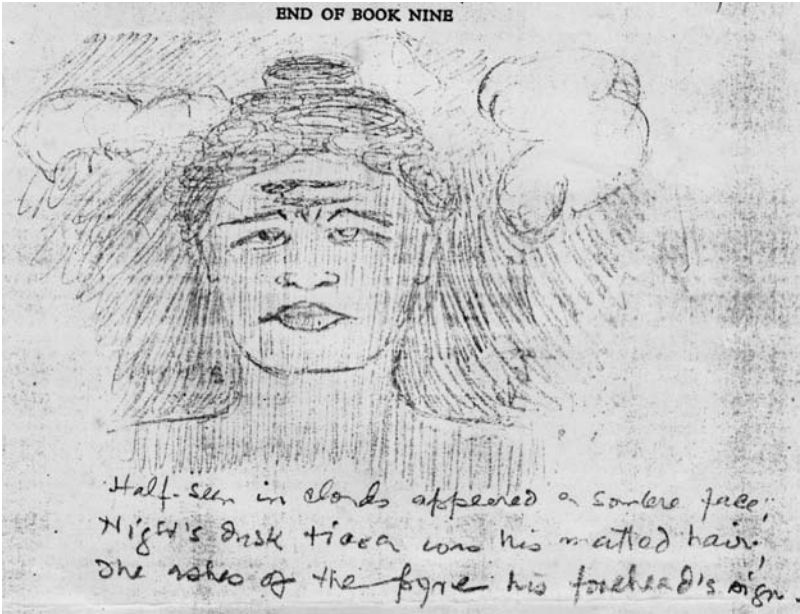 END OF BOOK NINE
Half-seen in clouds appeared a sombre face;
Night's dusk tiara was his matted hair,
The ashes of the pyre his forehead's sign.